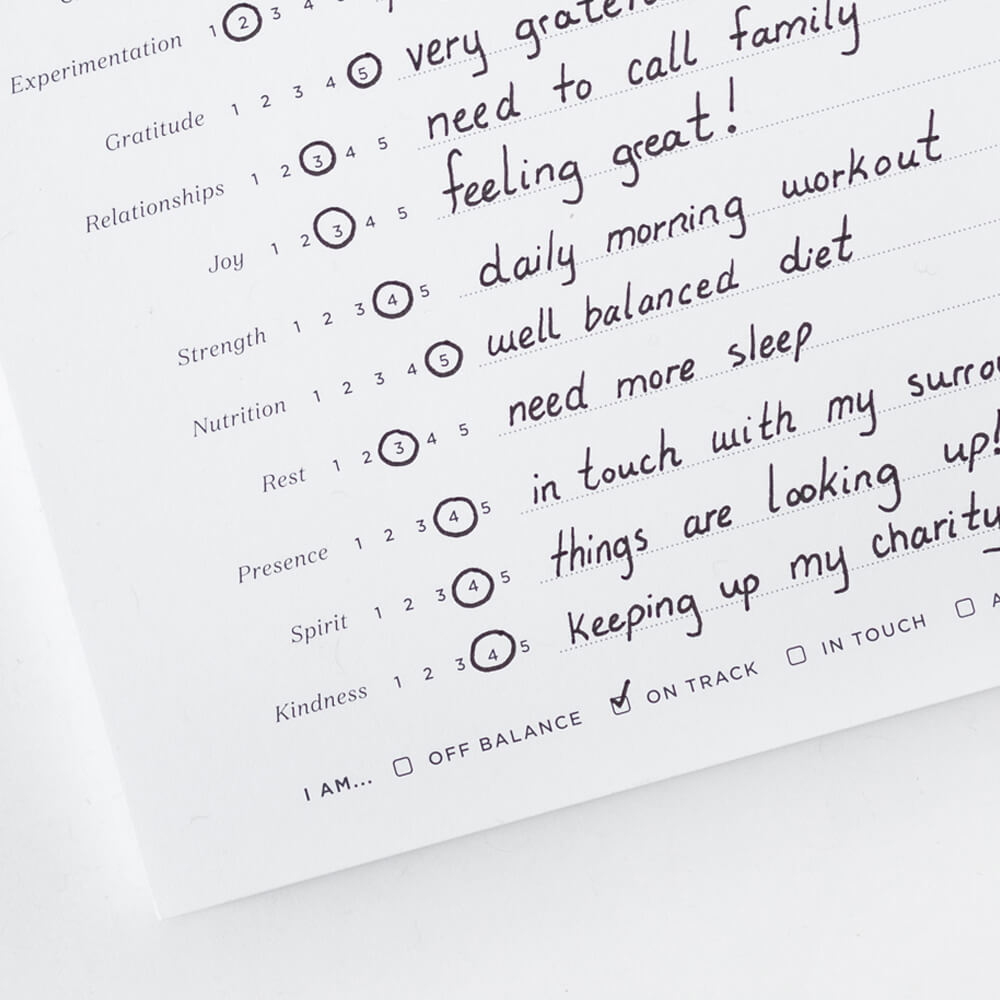 Experimentation 1 2 3 4
Gratitude 1 2 3 4 5 very
Relationships 1 2 3 4 5 need to call family
Joy 1 2 3 4 5 feeling great!
Strength 1 2 3 4 5 daily morning workout
Nutrition 1 2 3 4 5 well balanced diet
Rest 1 2 3 4 5 need more sleep
Presence 1 2 3 4 5 in touch with my
Spirit 1 2 3 4 5 things are looking up!
Kindness 1 2 3 4 5 Keeping up my charity
I AM... OFF BALANCE ON TRACK IN TOUCH